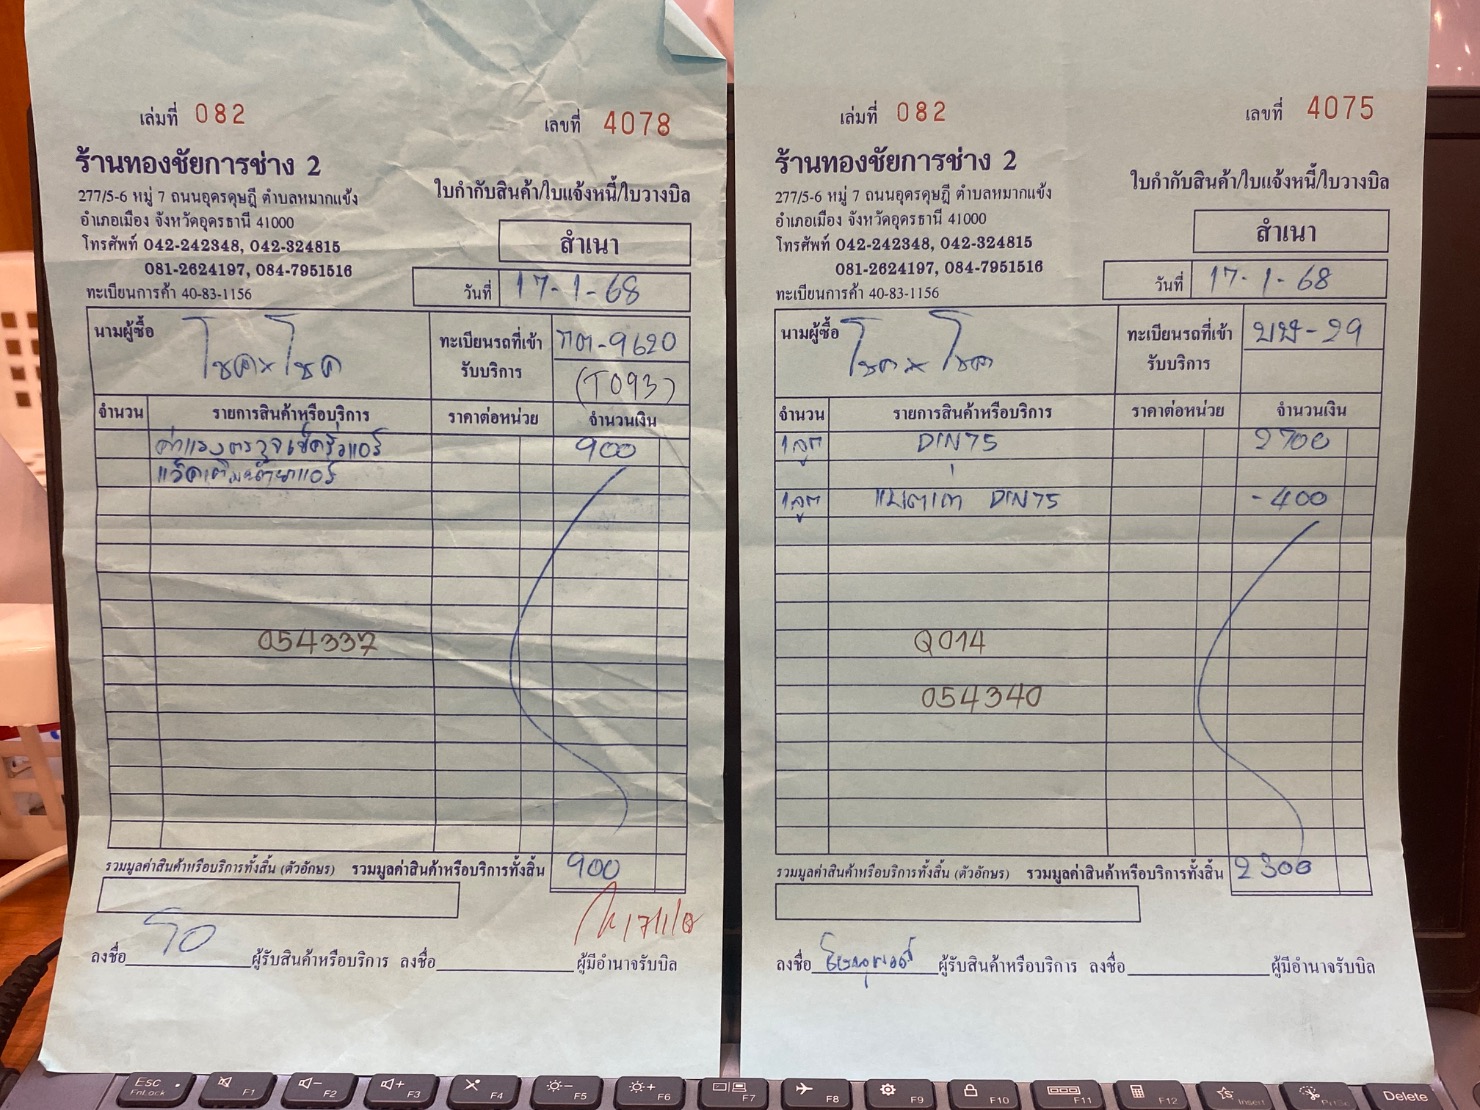 เล่มที่ 082
เลขที่ 4078
ร้านทองชัยการช่าง 2
277/5-6 หมู่ 7 ถนนอุดรดุษฎี ตำบลหมากแข้ง
อำเภอเมือง จังหวัดอุดรธานี 41000
โทรศัพท์ 042-242348, 042-324815
081-2624197, 084-7951516
ทะเบียนการค้า 40-83-1156
ใบกำกับสินค้า/ใบแจ้งหนี้/ใบวางบิล
สำเนา
วันที่ 17-1-68
นามผู้ซื้อ โชค x โชค
ทะเบียนรถที่เข้ารับบริการ
-9620
(T093)
จำนวน รายการสินค้าหรือบริการ ราคาต่อหน่วย จำนวนเงิน
ค่าแรงตรวจเช็ครั่วแอร์ 900
054337
รวมมูลค่าสินค้าหรือบริการทั้งสิ้น (ตัวอักษร) รวมมูลค่าสินค้าหรือบริการทั้งสิ้น 900
ลงชื่อ ผู้รับสินค้าหรือบริการ ลงชื่อ ผู้มีอำนาจรับบิล
เล่มที่ 082
เลขที่ 4075
ร้านทองชัยการช่าง 2
277/5-6 หมู่ 7 ถนนอุดรดุษฎี ตำบลหมากแข้ง
อำเภอเมือง จังหวัดอุดรธานี 41000
โทรศัพท์ 042-242348, 042-324815
081-2624197, 084-7951516
ทะเบียนการค้า 40-83-1156
ใบกำกับสินค้า/ใบแจ้งหนี้/ใบวางบิล
สำเนา
วันที่ 17-1-68
นามผู้ซื้อ โชค x โชค
ทะเบียนรถที่เข้ารับบริการ
-29
จำนวน รายการสินค้าหรือบริการ ราคาต่อหน่วย จำนวนเงิน
1 ลูก DIN75 2700
1 ลูก แบตเก่า DIN75 -400
Q014
054340
รวมมูลค่าสินค้าหรือบริการทั้งสิ้น (ตัวอักษร) รวมมูลค่าสินค้าหรือบริการทั้งสิ้น 2300
ลงชื่อ ผู้รับสินค้าหรือบริการ ลงชื่อ ผู้มีอำนาจรับบิล
Esc F1 F2 F3 F4 F5 F6 F7 F8 F9 F10 F11 F12 Insert PrtSc Delete
FnLock